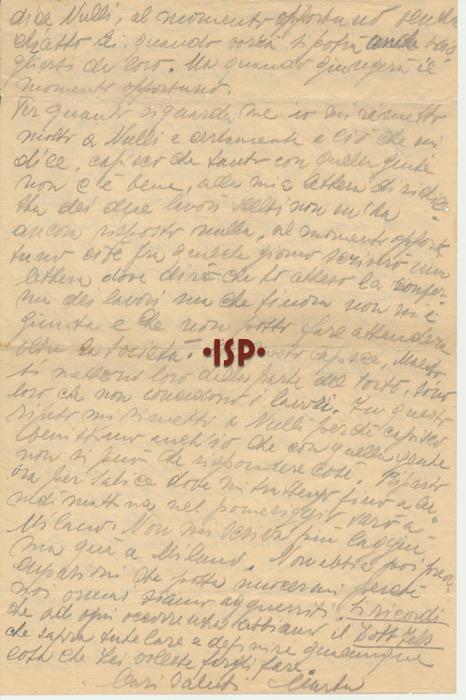 dice Nulli, al momento opportuno
quando vorrà si potrà anche
di loro. Ma quando giungerà il
momento opportuno.
Per quanto riguarda me io mi rimetto
molto a Nulli e certamente a ciò che mi
dice, capisco che tanto con quella gente
non c'è bene, alla mia lettera di
dei due lavori scelti non m'ha
ancora risposto nulla, al momento oppor
tuno cioè fra qualche giorno scriverò una
lettera dove dirò che ho atteso la confer
ma dei lavori ma che finora non mi è
giunta e che non posso fare attendere
la società. capisce, Maestro
si mettono loro dalla parte del torto, sono
loro che non concedono i lavori. In questo
mi rimetto a Nulli perché capisco
benissimo anch'io che con quella gente
non si può che rispondere così. Riparto
ora per Salice dove mi trattengo fino a lu
nedì mattina, nel pomeriggio sarò a
Milano. Non mi scriva più laggiù,
ma quà a Milano. Non abbia poi preoc
cupazioni che possa nuocermi perché
noi ormai siamo agguerriti. Si ricordi
che ad ogni occorrenza abbiamo il Dott.
che saprà tutelare e definire qualunque
cosa che Lei volesse fargli fare.
Cari saluti Marta
•ISP•